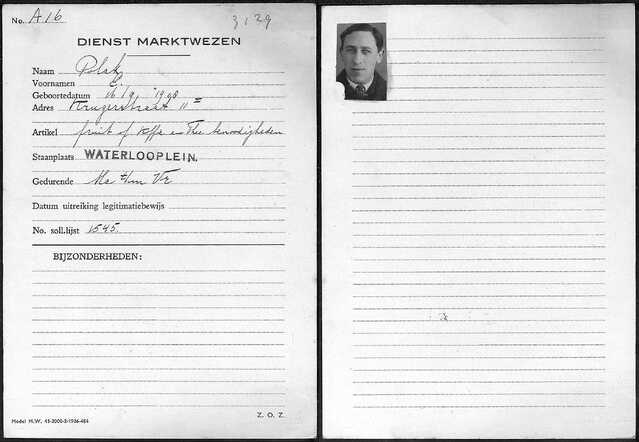 No. A16
3129
DIENST MARKTWEZEN
Naam Polak
Voornamen E.
Geboortedatum 16/9 1908
Adres Krugerstraat 11 II
Artikel fruit of koffie en Thee benodigheden
Staanplaats WATERLOOPLEIN.
Gedurende Ma t/m Vr
Datum uitreiking legitimatiebewijs
No. soll.lijst 1545.
BIJZONDERHEDEN:
Z. O. Z.
Model M.W. 45-2000-5-1936-484